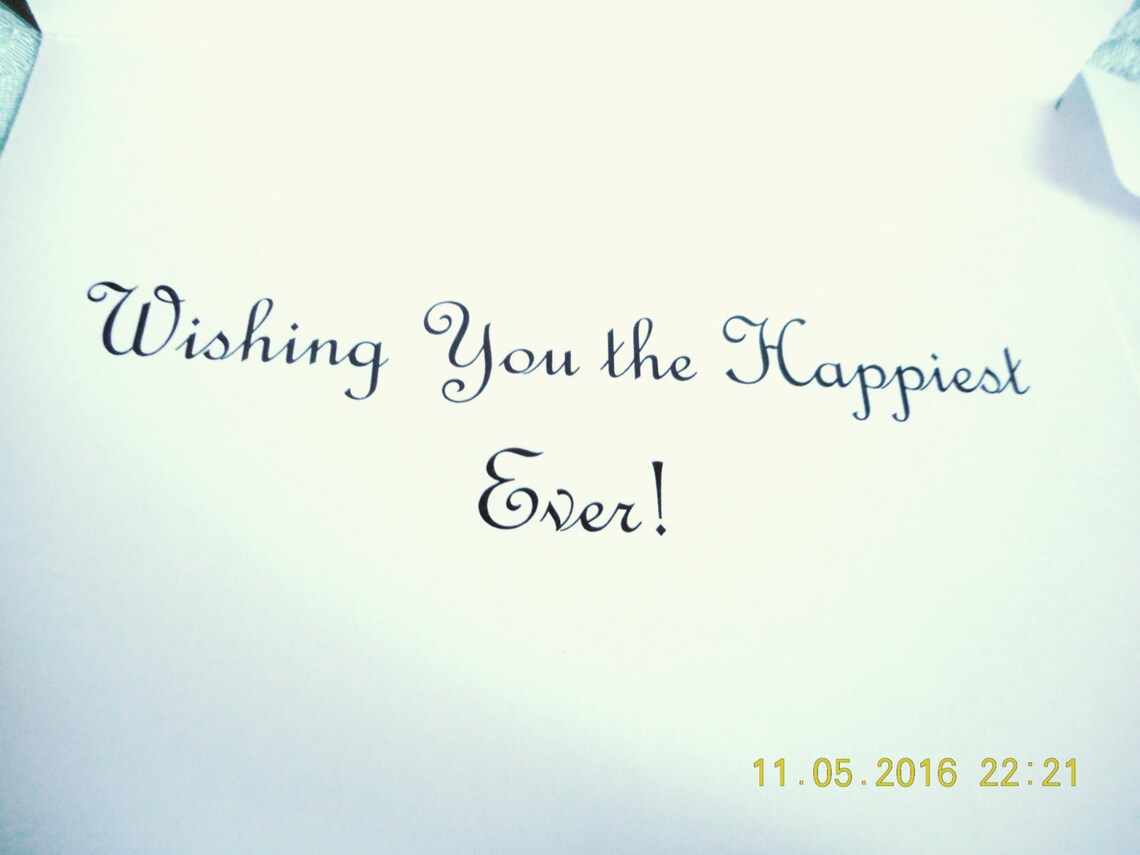 Wishing You the Happiest
Ever!
11.05.2016 22:21